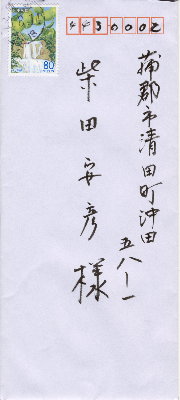 4430002
蒲郡市清田町沖田
五八ー一
柴田安彦様
80